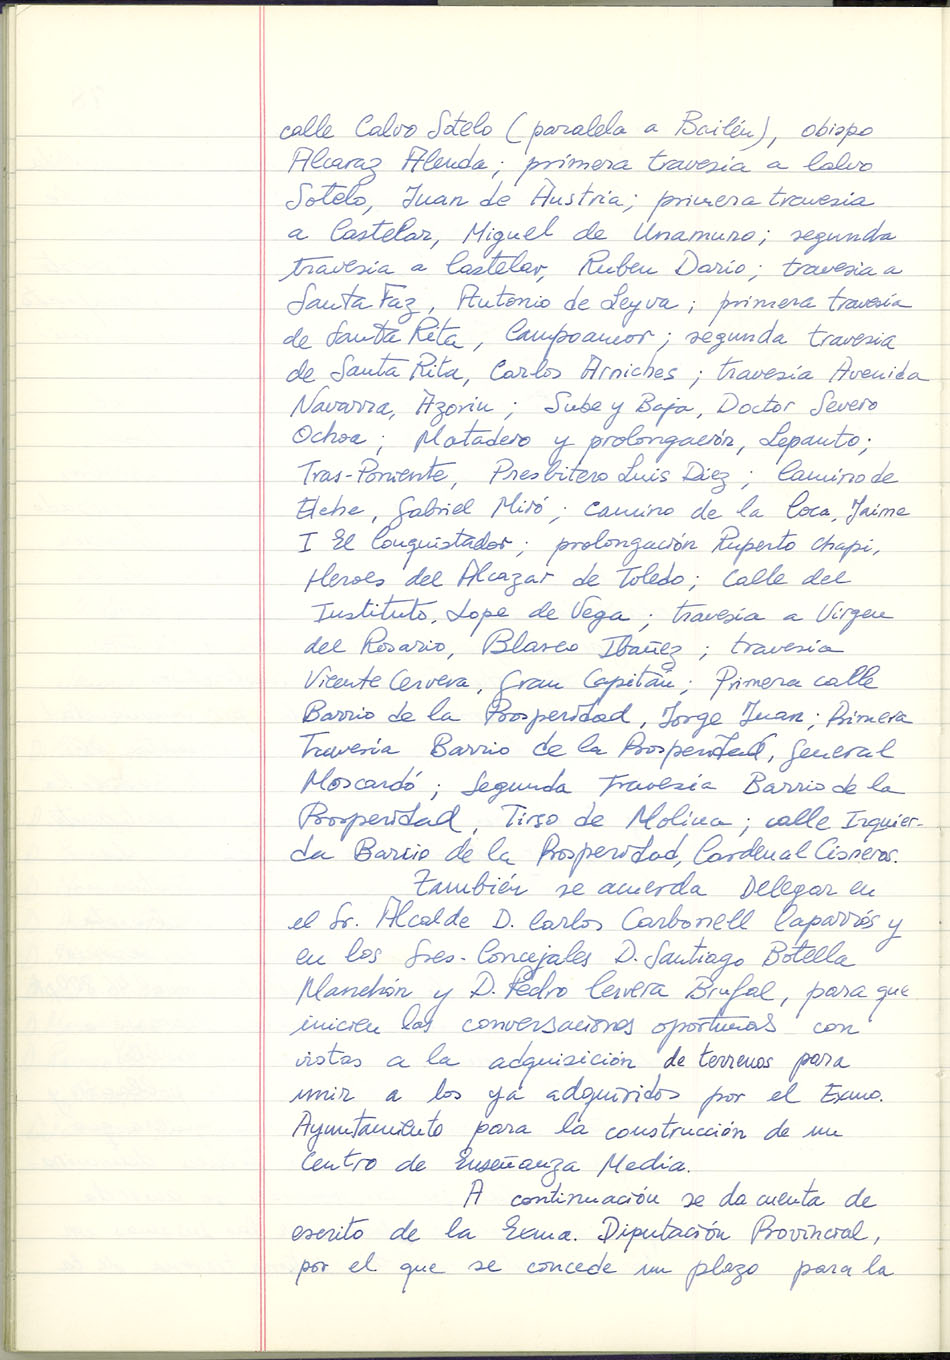 calle Calvo Sotelo (paralela a Bailén), obispo
Alcaraz Alenda; primera travesia a Calvo
Sotelo, Juan de Austria; primera travesia
a Castelar, Miguel de Unamuno; segunda
travesia a Castelar, Ruben Dario; travesia a
Santa Faz, Antonio de Leyva; primera travesia
de Santa Rita, Campoamor; segunda travesia
de Santa Rita, Carlos Arniches; travesia Avenida
Navarra, Azorin; Sube y Baja, Doctor Severo
Ochoa; Matadero y prolongación, Lepanto;
Tras-Poniente, Presbitero Luis Diez; Camino de
Elche, Gabriel Miró; camino de la Coca, Jaime
I El Conquistador; prolongación Ruperto Chapi,
Heroes del Alcazar de Toledo; Calle del
Instituto, Lope de Vega; travesia a Virgen
del Rosario, Blasco Ibañez; travesia
Vicente Cervera, Gran Capitán; Primera calle
Barrio de la Prosperidad, Jorge Juan; Primera
Travesia Barrio de la Prosperidad, General
Moscardó; Segunda Travesia Barrio de la
Prosperidad, Tirso de Molina; calle Izquier-
da Barrio de la Prosperidad, Cardenal Cisneros.
También se acuerda Delegar en
el Sr. Alcalde D. Carlos Carbonell Caparrós y
en los Sres. Concejales D. Santiago Botella
Manchón y D. Pedro Cervera Brufal, para que
inicien las conversaciones oportunas con
vistas a la adquisición de terrenos para
unir a los ya adquiridos por el Exmo.
Ayuntamiento para la construcción de un
Centro de Enseñanza Media.
A continuación se da cuenta de
escrito de la Exma. Diputación Provincial,
por el que se concede un plazo para la